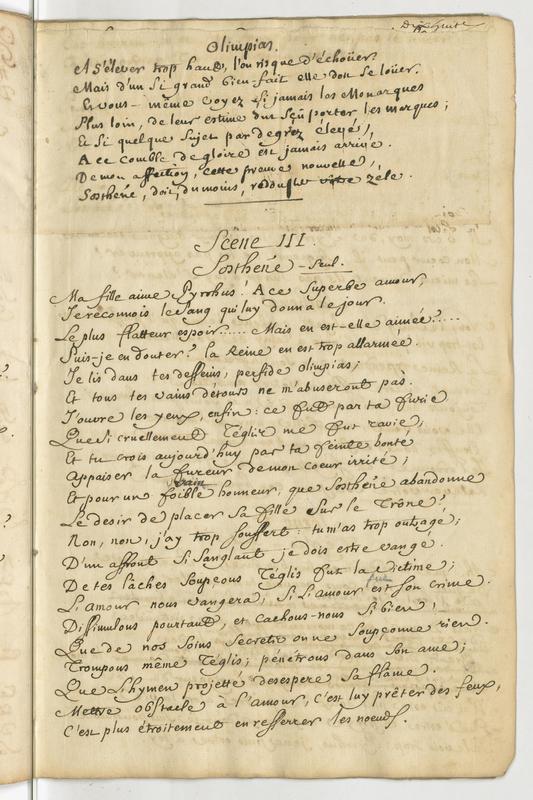 Olimpias.
A s'élever trop haut, l'on risque d'échoüer.
Mais d'un si grand bien-fait elle doit se loüer.
Et vous-même voyez si jamais les Monarques
Plus loin, de leur estime ont sçû porter les marques;
Et si quelque sujet par degrez élevé,
A ce comble de gloire est jamais arrivé.
De mon affection, cette preuve nouvelle,
Sosthéne, doit, du moins, zéle.
Scéne III.
Sosthéne - Seul.
Ma fille aime Pyrrhus! A ce superbe amour,
Je reconnois le sang qui luy donna le jour.
Le plus flatteur espoir..... Mais en est-elle aimée?....
Puis-je en douter? la Reine en est trop allarmée.
Je lis dans tes desseins, perfide Olimpias;
Et tous tes vains détours ne m'abuseront pas.
J'ouvre les yeux, enfin: ce fut par ta furie
Que si cruellement Téglis me fut ravie;
Et tu crois aujourd'huy par ta feinte bonté
Appaiser la fureur de mon coeur irrité;
vain
Et pour un foible honneur, que Sosthéne abandonne
Le desir de placer sa fille sur le Trône!
Non, non, j'ay trop souffert: tu m'as trop outragé;
D'un affront si sanglant je dois estre vangé.
De tes lâches soupçons Téglis fut la victime;
fut
L'amour nous vangera, si l'amour est son crime.
Dissimulons pourtant, et cachons-nous si bien,
Que de nos soins secrets on ne soupçonne rien.
Trompons même Téglis; pénétrons dans son ame;
Que l'hymen projetté desespere sa flâme.
Mettre obstacle à l'amour, c'est luy prêter des feux,
C'est plus étroitement en resserrer les noeuds.